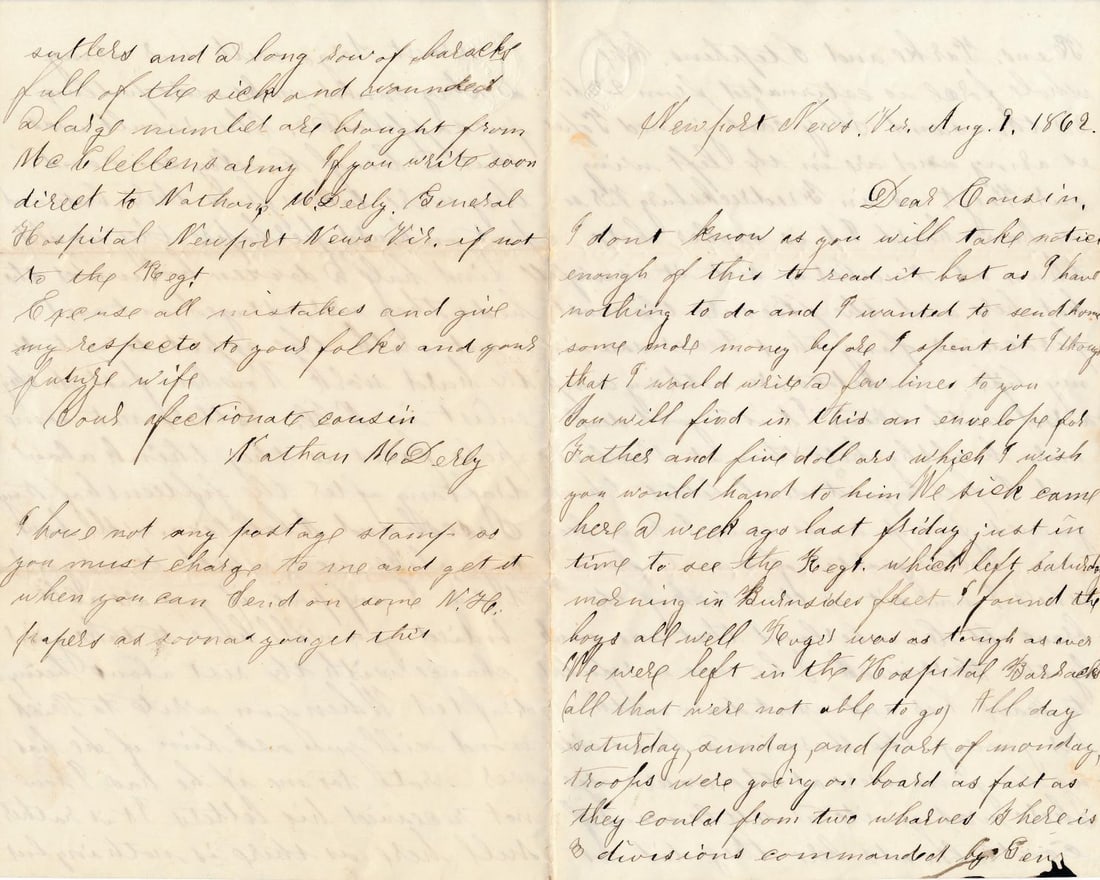 Newport News. Vir. Aug. 9, 1862.
Dear Cousin,
I dont know as you will take notice
enough of this to read it but as I have
nothing to do and I wanted to send home
some more money before I spent it I though
that I would write a few lines to you
You will find in this an envelope for
Father and five dollars which I wish
you would hand to him We sick came
here a week ago last friday just in
time to see the Regt. which left saturday
morning in Burnsides fleet I found the
boys all well was as tough as ever
We were left in the Hospital Barracks
(all that were not able to go) All day
saturday, sunday, and part of monday,
troops were going on board as fast as
they could from two wharves There is
3 divisions commanded by Gen.
sutlers and a long row of baracks
full of the sick and wounded
a large number are brought from
Mc Clellens army If you write soon
direct to Nathan M. Derby. General
Hospital Newport News Vir. if not
to the Regt.
Excuse all mistakes and give
my respects to your folks and your
future wife
Your fectionate cousin
Nathan M Derby
I have not any postage stamp so
you must charge to me and get it
when you can Send on some N.H.
papers as soon as you get this